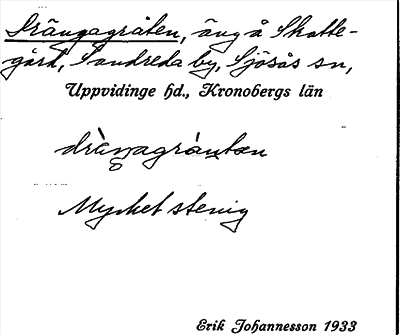 Drängagråten, äng å Skatte-
gård, Sandreda by, Sjösås sn,
Uppvidinge hd., Kronobergs län
dràŋagrån̂tæn
Mycket stenig
Erik Johannesson 1933